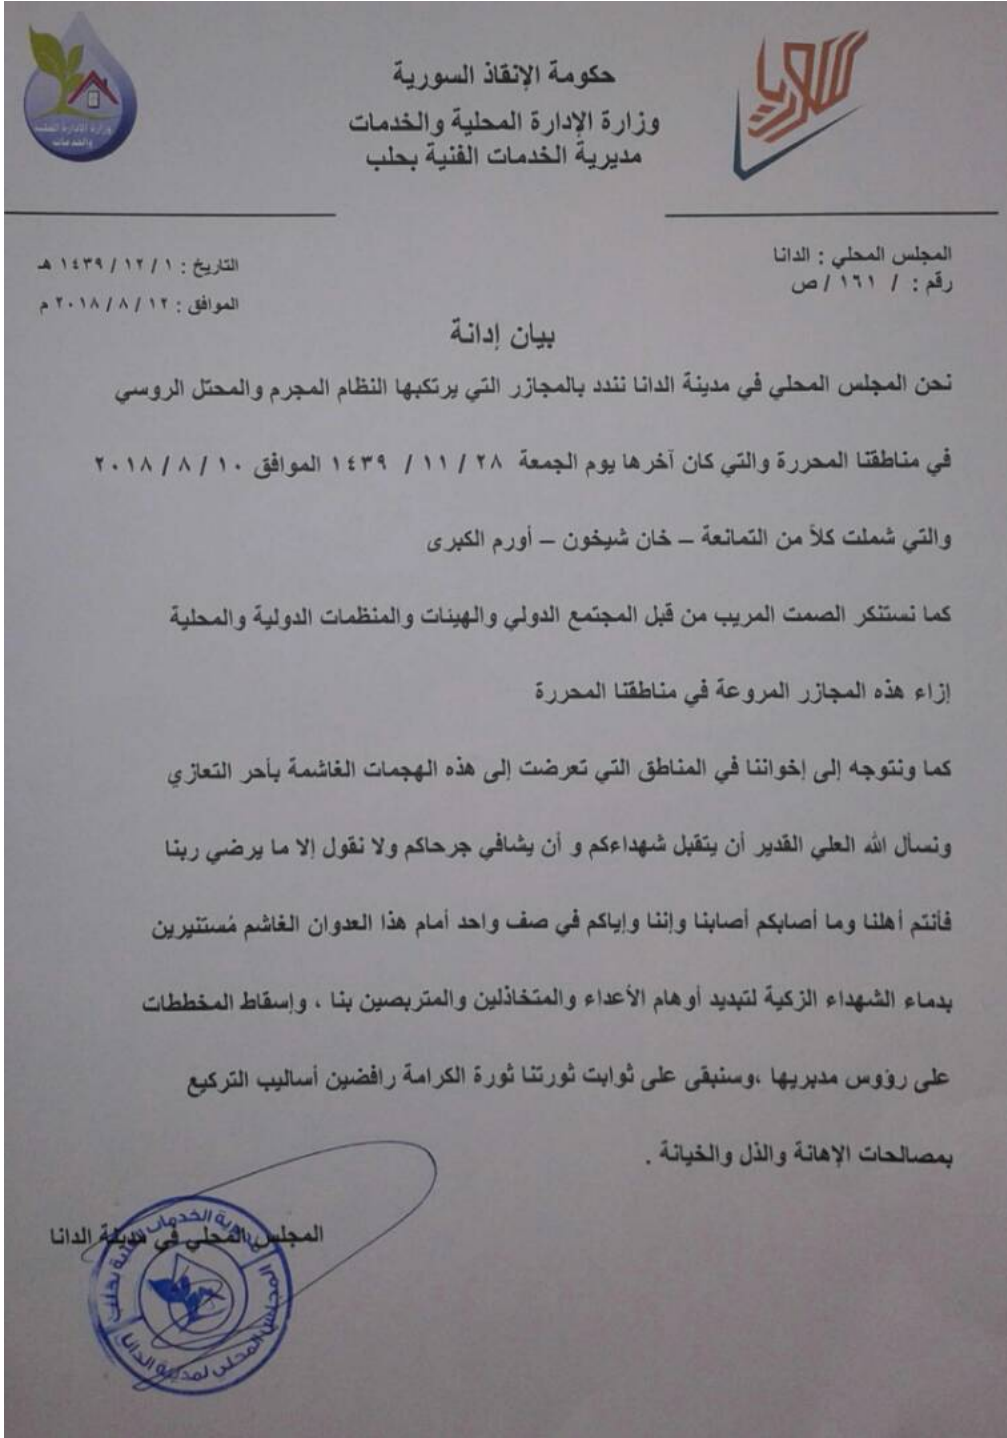 سوريا
حكومة الإنقاذ السورية
وزارة الإدارة المحلية والخدمات
مديرية الخدمات الفنية بحلب
وزارة الادارة المحلية
والخدمات
المجلس المحلي : الدانا
رقم : / ١٦١ / ص
التاريخ : ١ / ١٢ / ١٤٣٩ هـ
الموافق : ١٢ / ٨ / ٢٠١٨ م
بيان إدانة
نحن المجلس المحلي في مدينة الدانا نندد بالمجازر التي يرتكبها النظام المجرم والمحتل الروسي
في مناطقنا المحررة والتي كان آخرها يوم الجمعة ٢٨ / ١١ / ١٤٣٩ الموافق ١٠ / ٨ / ٢٠١٨
والتي شملت كلاً من التمانعة – خان شيخون – أورم الكبرى
كما نستنكر الصمت المريب من قبل المجتمع الدولي والهيئات والمنظمات الدولية والمحلية
إزاء هذه المجازر المروعة في مناطقنا المحررة
كما ونتوجه إلى إخواننا في المناطق التي تعرضت إلى هذه الهجمات الغاشمة بأحر التعازي
ونسأل الله العلي القدير أن يتقبل شهداءكم و أن يشافي جرحاكم ولا نقول إلا ما يرضي ربنا
فأنتم أهلنا وما أصابكم أصابنا وإننا وإياكم في صف واحد أمام هذا العدوان الغاشم مُستنيرين
بدماء الشهداء الزكية لتبديد أوهام الأعداء والمتخاذلين والمتربصين بنا ، وإسقاط المخططات
على رؤوس مدبريها ،وسنبقى على ثوابت ثورتنا ثورة الكرامة رافضين أساليب التركيع
بمصالحات الإهانة والذل والخيانة .
المجلس المحلي في مدينة الدانا
مديرية الخدمات الفنية بحلب
المجلس المحلي لمدينة الدانا